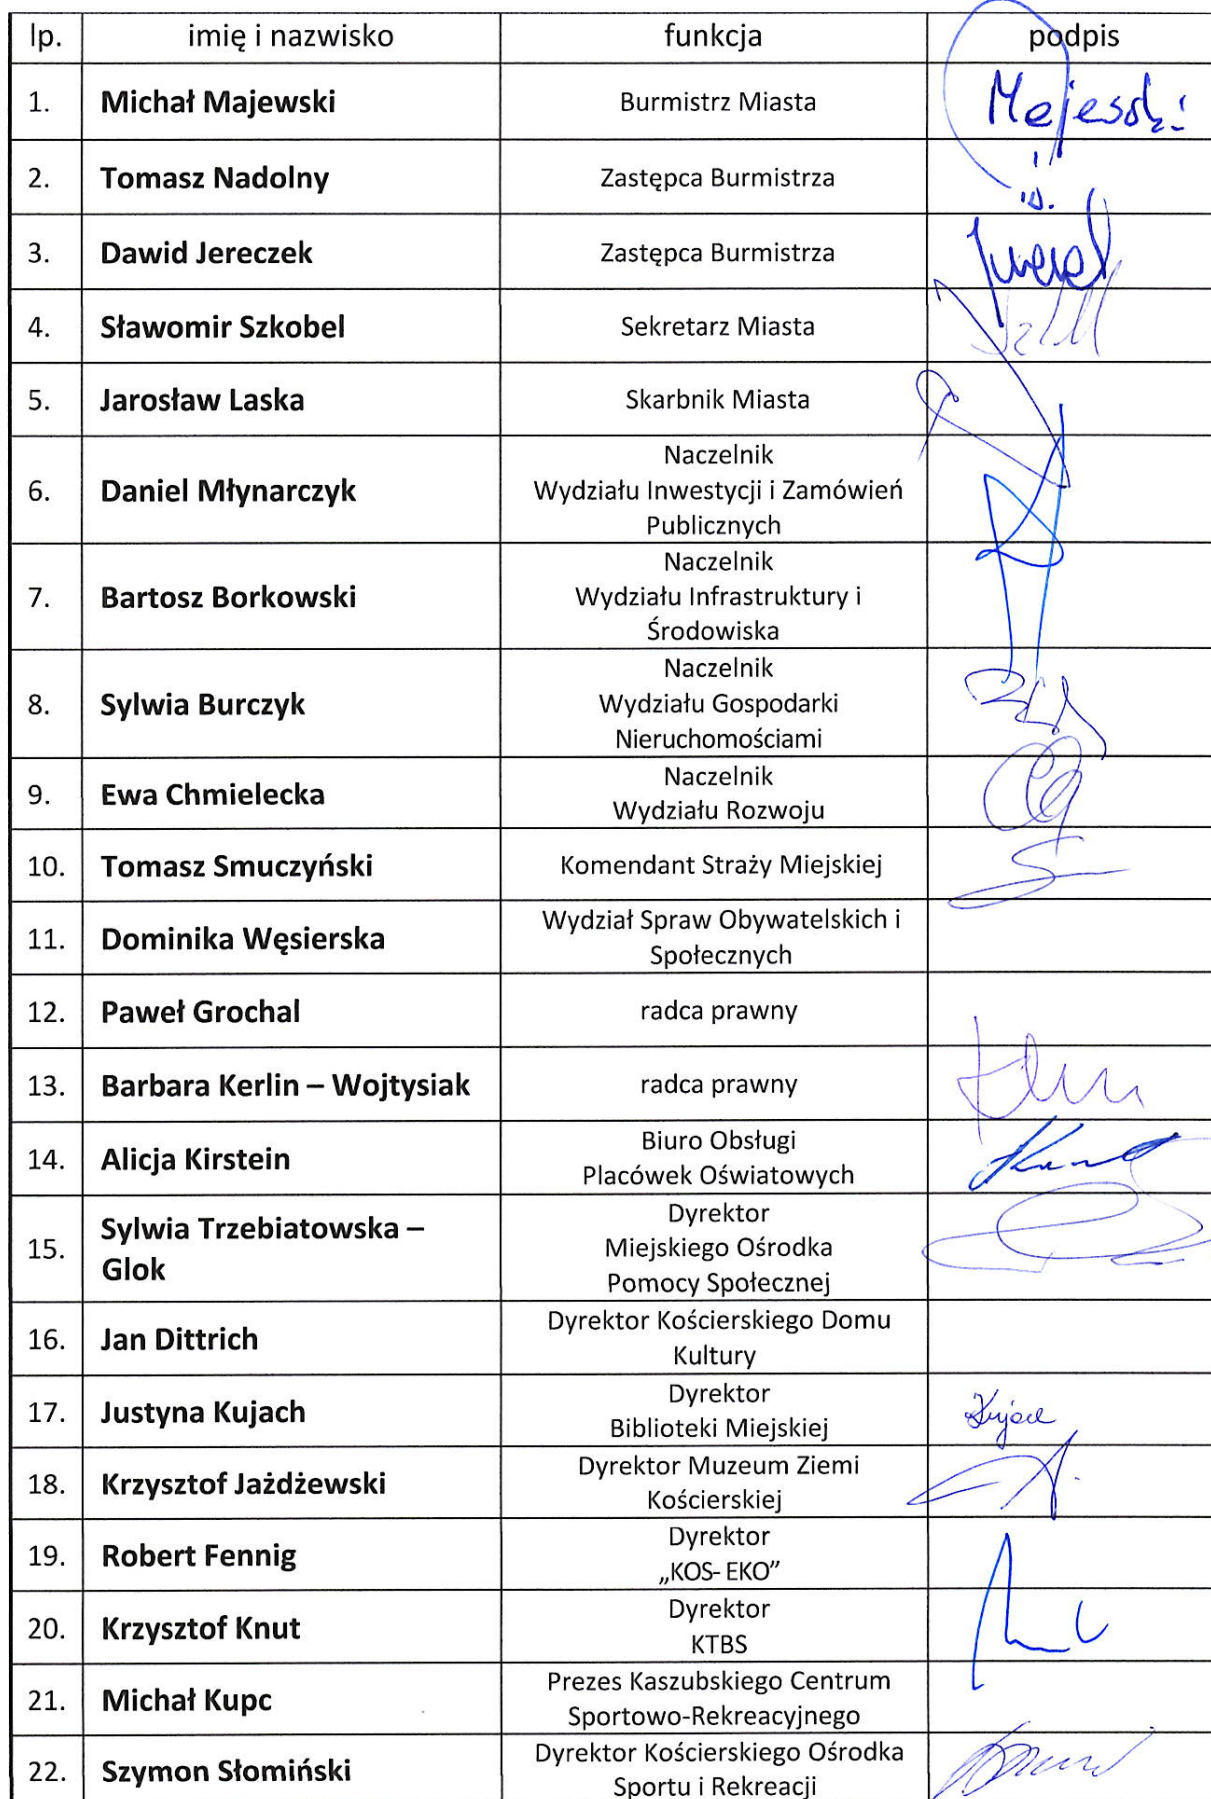 lp. imię i nazwisko funkcja podpis
1. Michał Majewski Burmistrz Miasta Majewski
2. Tomasz Nadolny Zastępca Burmistrza
3. Dawid Jereczek Zastępca Burmistrza
4. Sławomir Szkobel Sekretarz Miasta
5. Jarosław Laska Skarbnik Miasta
6. Daniel Młynarczyk Naczelnik
Wydziału Inwestycji i Zamówień
Publicznych
7. Bartosz Borkowski Naczelnik
Wydziału Infrastruktury i
Środowiska
8. Sylwia Burczyk Naczelnik
Wydziału Gospodarki
Nieruchomościami
9. Ewa Chmielecka Naczelnik
Wydziału Rozwoju
10. Tomasz Smuczyński Komendant Straży Miejskiej
11. Dominika Węsierska Wydział Spraw Obywatelskich i
Społecznych
12. Paweł Grochal radca prawny
13. Barbara Kerlin – Wojtysiak radca prawny
14. Alicja Kirstein Biuro Obsługi
Placówek Oświatowych
15. Sylwia Trzebiatowska –
Glok Dyrektor
Miejskiego Ośrodka
Pomocy Społecznej
16. Jan Dittrich Dyrektor Kościerskiego Domu
Kultury
17. Justyna Kujach Dyrektor
Biblioteki Miejskiej Kujach
18. Krzysztof Jażdżewski Dyrektor Muzeum Ziemi
Kościerskiej
19. Robert Fennig Dyrektor
„KOS- EKO”
20. Krzysztof Knut Dyrektor
KTBS
21. Michał Kupc Prezes Kaszubskiego Centrum
Sportowo-Rekreacyjnego
22. Szymon Słomiński Dyrektor Kościerskiego Ośrodka
Sportu i Rekreacji